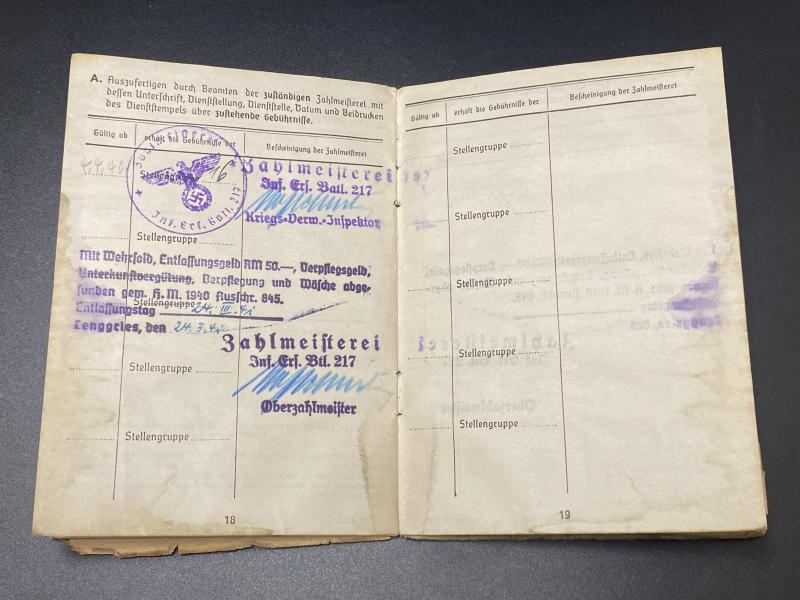 A. Auszufertigen durch Beamten der zuständigen Zahlmeisterei mit
dessen Unterschrift, Dienststellung, Dienststelle, Datum und Beidrucken
des Dienststempels über zustehende Gebührnisse.
Gültig ab
erhält die Gebührnisse der
Bescheinigung der Zahlmeisterei
4.4.40
Stellengruppe 16
Inf. Ers. Batl. 217
Zahlmeisterei
Inf. Ers. Batl. 217
Kriegs-Verw.-Inspektor
Stellengruppe
Mit Wehrsold, Entlassungsgeld RM 50.—, Verpflegsgeld,
Unterkunftvergütung, Verpflegung und Wäsche abge-
funden gem. H. M. 1940 Ausschr. 845.
Stellengruppe
Entlassungstag 24. III. 41
Lenggries, den 24.3.41
Zahlmeisterei
Inf. Ers. Btl. 217
Stellengruppe
Oberzahlmeister
Stellengruppe
18
Gültig ab
erhält die Gebührnisse der
Bescheinigung der Zahlmeisterei
Stellengruppe
Stellengruppe
Stellengruppe
Stellengruppe
Stellengruppe
19